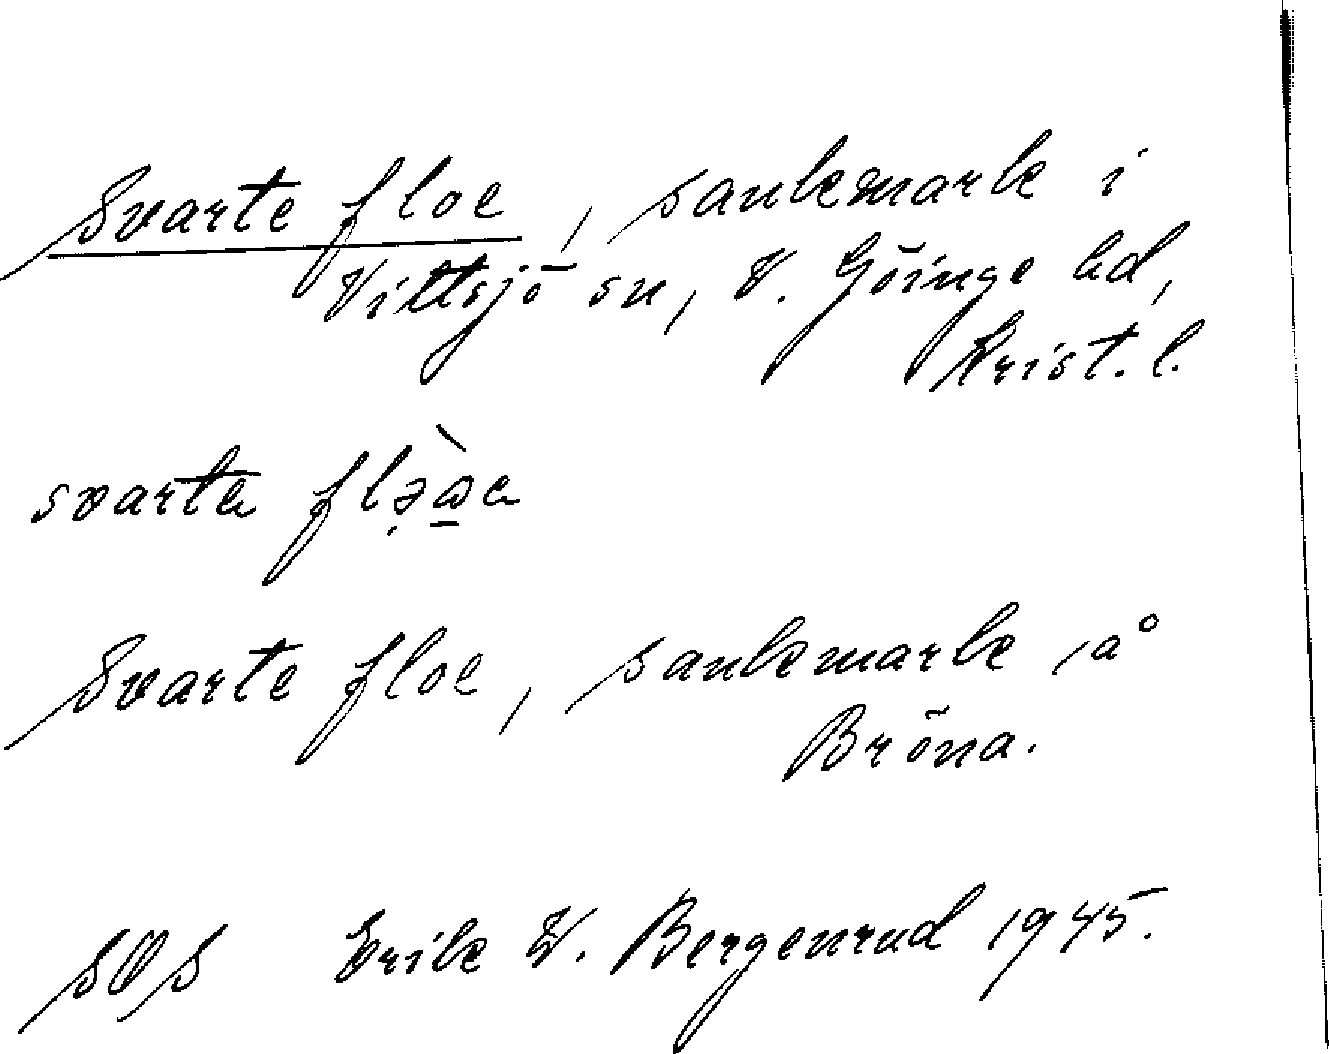 Svarte floe, sankmark i
Vittsjö sn, V. Göinge hd,
Krist. l.
svarta
Svarte floe, sankmark å
Bröna.
SOS Erik W. Bergenrud 1945.